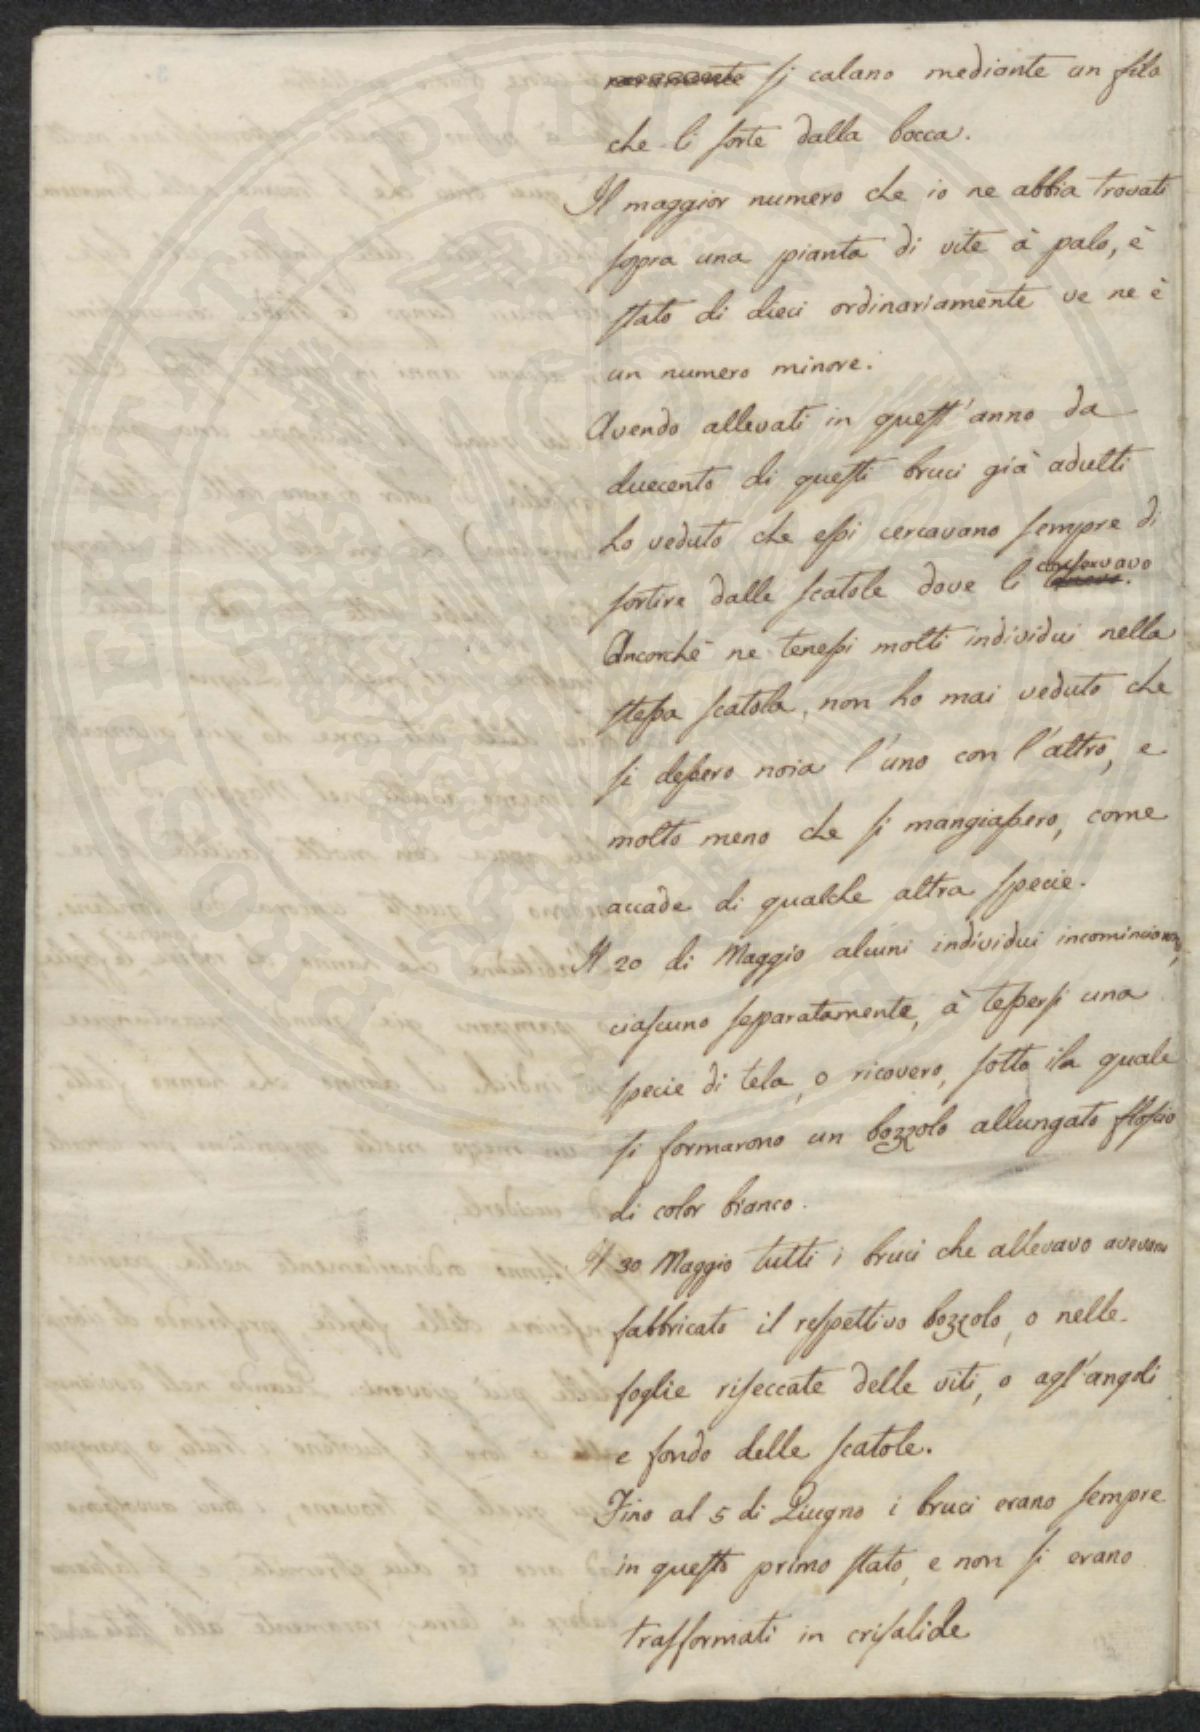 raramente si calano mediante un filo
che li sorte dalla bocca.
Il maggior numero che io ne abbia trovati
sopra una pianta di vite à palo, è
stato di dieci ordinariamente ve ne è
un numero minore.
Avendo allevati in quest'anno da
duecento di questi bruci già adulti
ho veduto che essi cercavano sempre di
conservavo
sortire dalle scatole dove li
Ancorchè ne tenessi molti individui nella
stessa scatola, non ho mai veduto che
si dessero noia l'uno con l'altro, e
molto meno che si mangiassero, come
accade di qualche altra specie.
Il 20 di Maggio alcuni individui incominciarono,
ciascuno separatamente, à tessersi una
specie di tela, o ricovero, sotto ila quale
si formarono un bozzolo allungato floscio
di color bianco.
Il 30 Maggio tutti i bruci che allevavo avevano
fabbricato il respettivo bozzolo, o nelle
foglie riseccate delle viti, o agl'angoli
e fondo delle scatole.
Fino al 5 di Giugno i bruci erano sempre
in questo primo stato, e non si erano
trasformati in crisalide